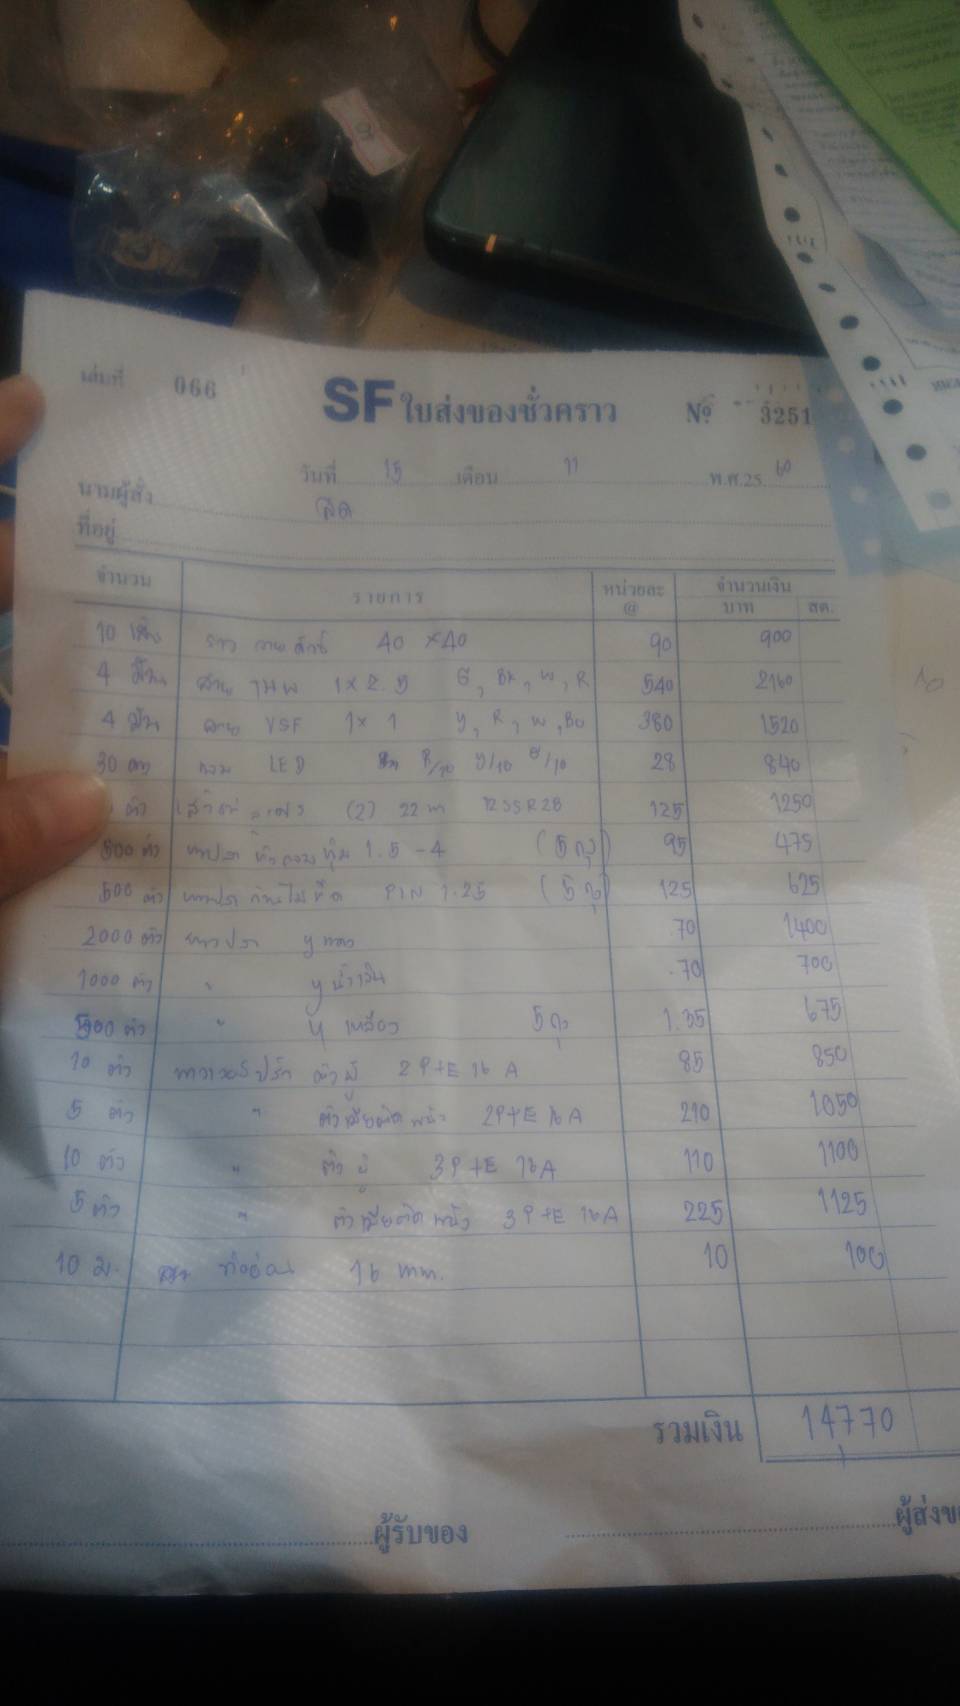 เล่มที่ 066 SF ใบส่งของชั่วคราว № 3251
วันที่ 15 เดือน 11 พ.ศ.25 60
นามผู้สั่ง สด
ที่อยู่
จำนวน รายการ หน่วยละ @ จำนวนเงิน
บาท สต.
10 เส้น ราง วายดักซ์ 40 × 40 90 900
4 ม้วน สาย THW 1 × 2.5 G, BK, W, R 540 2160
4 ม้วน สาย VSF 1 × 1 Y, R, W, BU 380 1520
30 ดวง หลอด LED R/10 Y/10 G/10 28 840
ตัว (2) 22 125 1250
500 ตัว หางปลา 1.5 - 4 (5 ถุง) 95 475
500 ตัว หางปลา PIN 1.25 (5 ถุง) 125 625
2000 ตัว หางปลา Y แดง .70 1400
1000 ตัว " Y น้ำเงิน .70 700
500 ตัว " Y เหลือง 5 ถุง 1.35 675
10 ตัว พาวเวอร์ปลั๊ก ตัวผู้ 2P+E 16A 85 850
5 ตัว " ตัวเมียติดผนัง 2P+E 16A 210 1050
10 ตัว " ตัวผู้ 3P+E 16A 110 1100
5 ตัว " ตัวเมียติดผนัง 3P+E 16A 225 1125
10 ม. ท่ออ่อน 16 mm. 10 100
รวมเงิน 14770
ผู้รับของ ผู้ส่งข